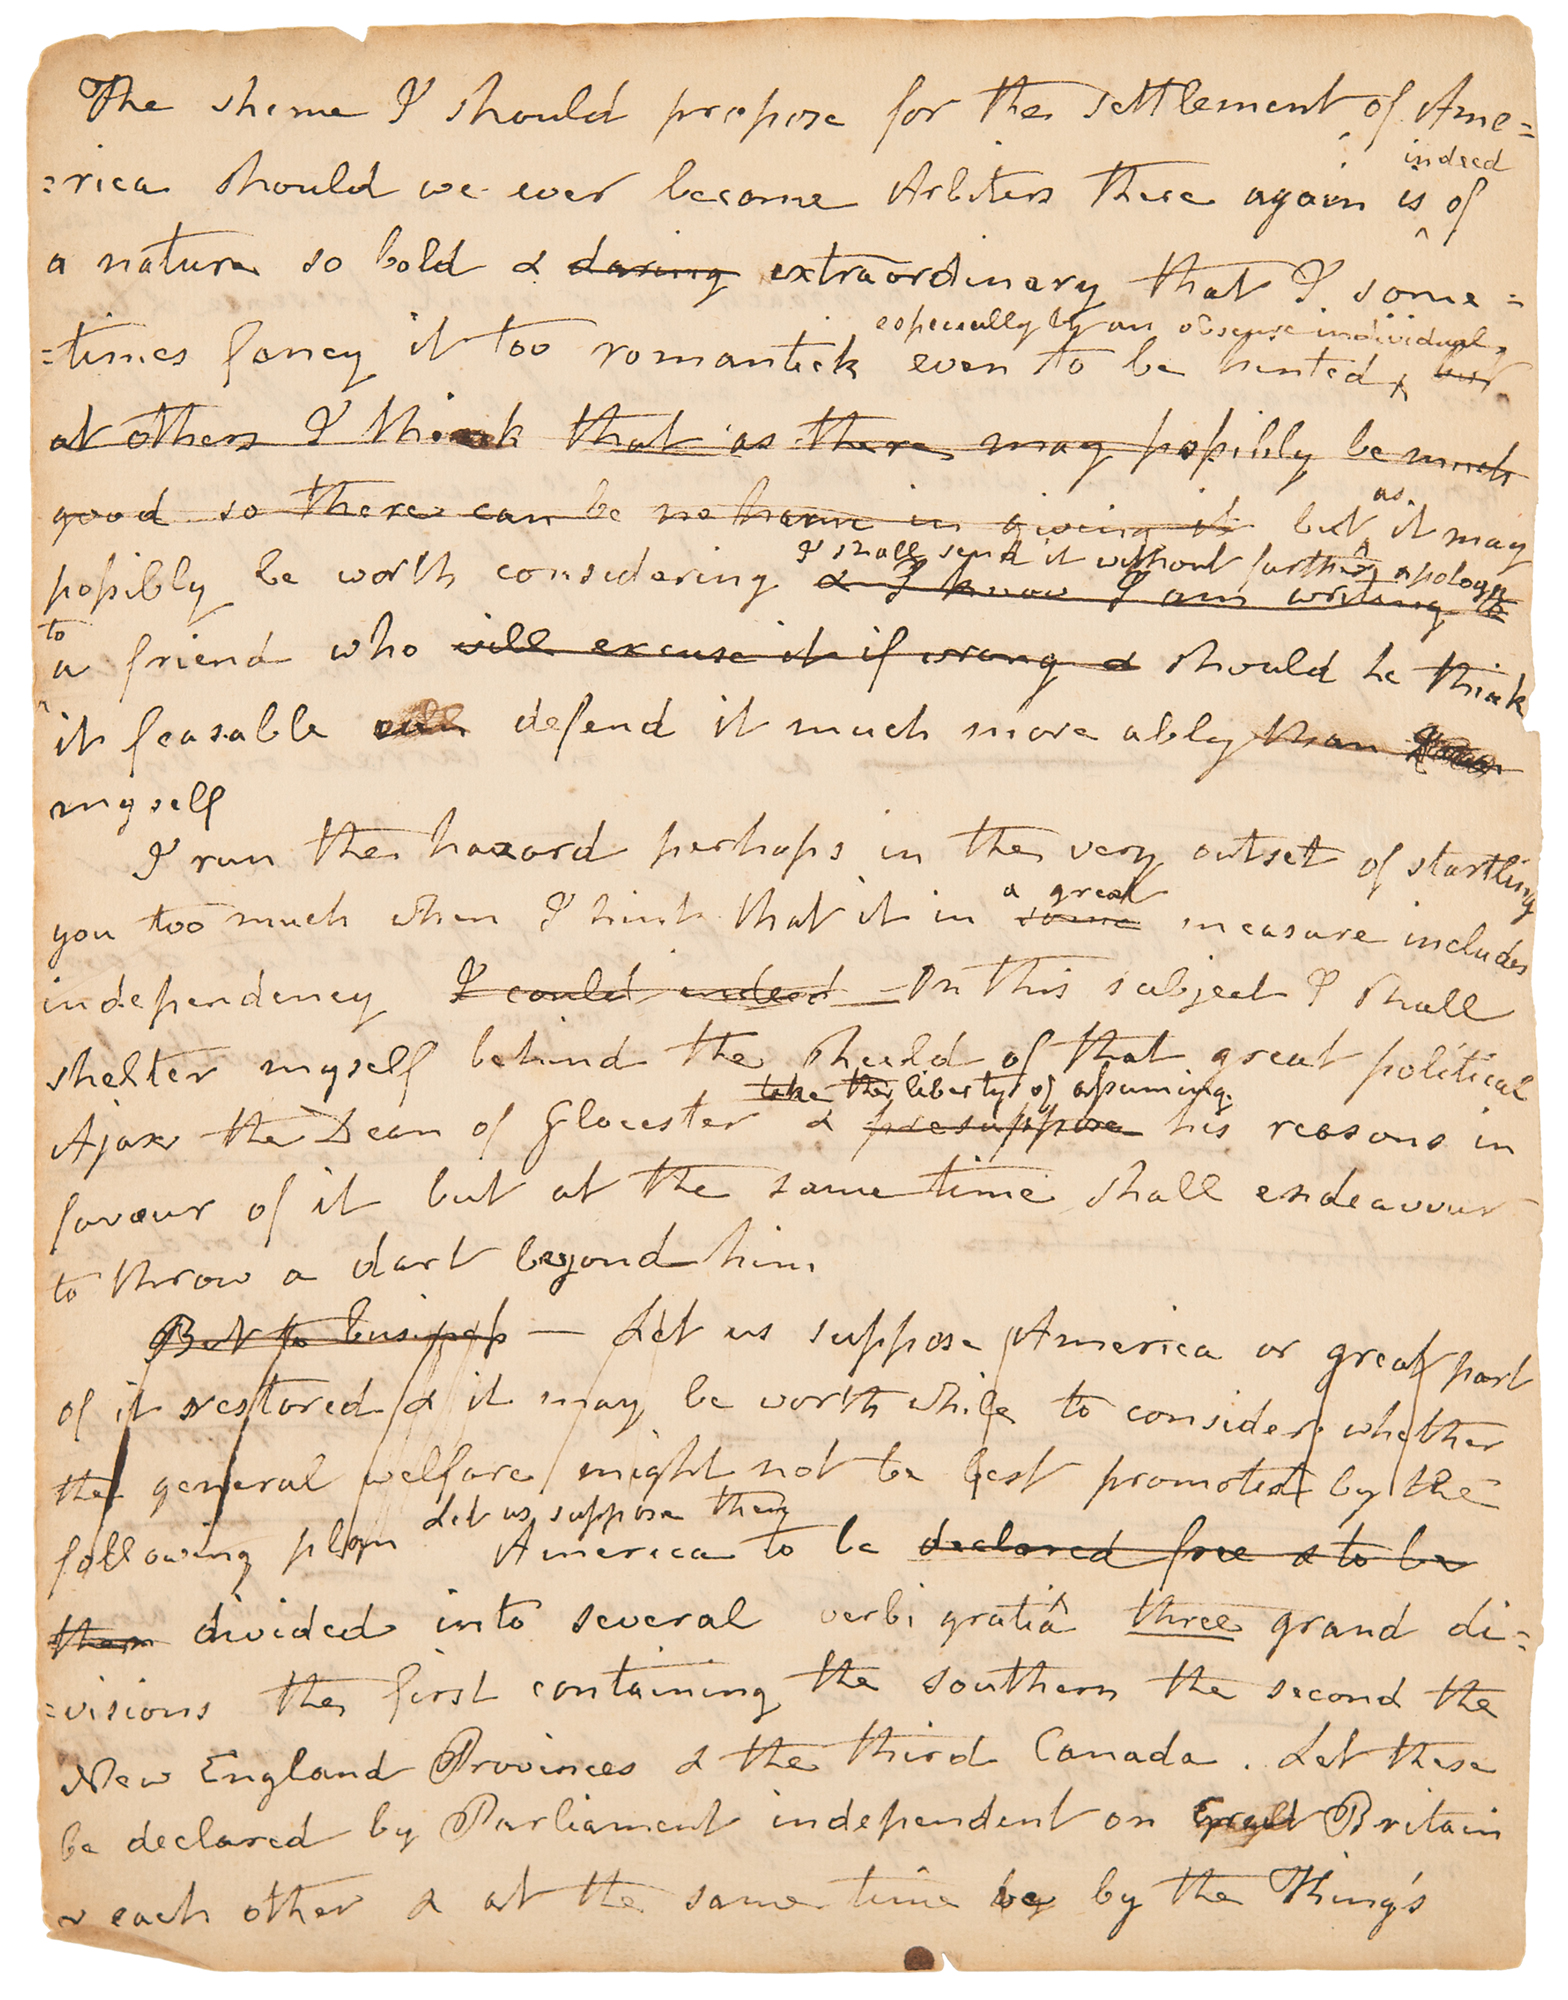 The sheme I should propose for the settlement of Ame=
indeed
=rica should we ever become Arbiters there again is of
a nature so bold & daring extraordinary that I some=
especially by an obscure individual,
=times fancy it too romantick even to be hinted, but
at others I think that as there may possibly be much
good so there can be no harm in giving it but as it may
I shall send it without further apology
possibly be worth considering & I know I am writing to
to
a friend who will excuse it if wrong & should he think
it feasable will defend it much more ably than
myself
I run the hazard perhaps in the very outset of startling
a great
you too much when I hint that it in some measure includes
independency I could indeed — On this subject I shall
shelter myself behind the sheild of that great political
take the liberty of assuming
Ajax the Dean of Glocester & presuppose his reasons in
favour of it but at the same time shall endeavour
to throw a dart beyond him
But to business — Let us suppose America or great part
of it restored & it may be worth while to consider whether
the general welfare might not be best promoted by the
Let us suppose then
following plan America to be declared free & to be
them divided into several verbi gratiâ three grand di=
=visions the first containing the southern the second the
New England Provinces & the third Canada. Let these
be declared by Parliament independent on Great Britain
& each other & at the same time by by the King's